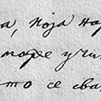 а, која на
море учи
то се сва